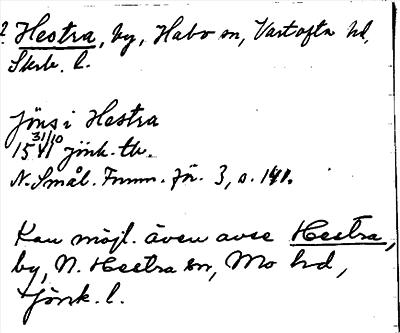 ? Hestra, by, Habo sn, Vartofta hd,
Skrb. l.
Jöns i Hestra
15 31/10 41 jönk. tb.
N. Smål. Fornm. för. 3, s. 141.
Kan möjl. även avse Hestra,
by, N. Hestra sn, Mo hd,
Jönk. l.